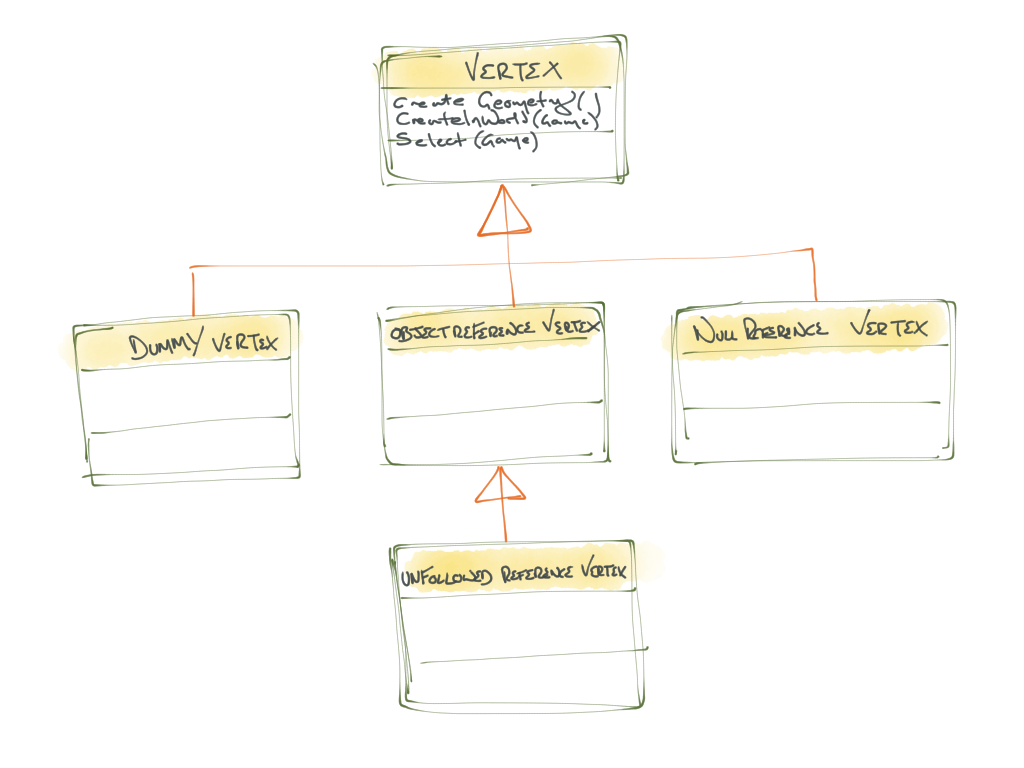 VERTEX
Create Geometry()
CreateInWorld(Game)
Select(Game)
DUMMY VERTEX
OBJECTREFERENCE VERTEX
NULL REFERENCE VERTEX
UNFOLLOWED REFERENCE VERTEX